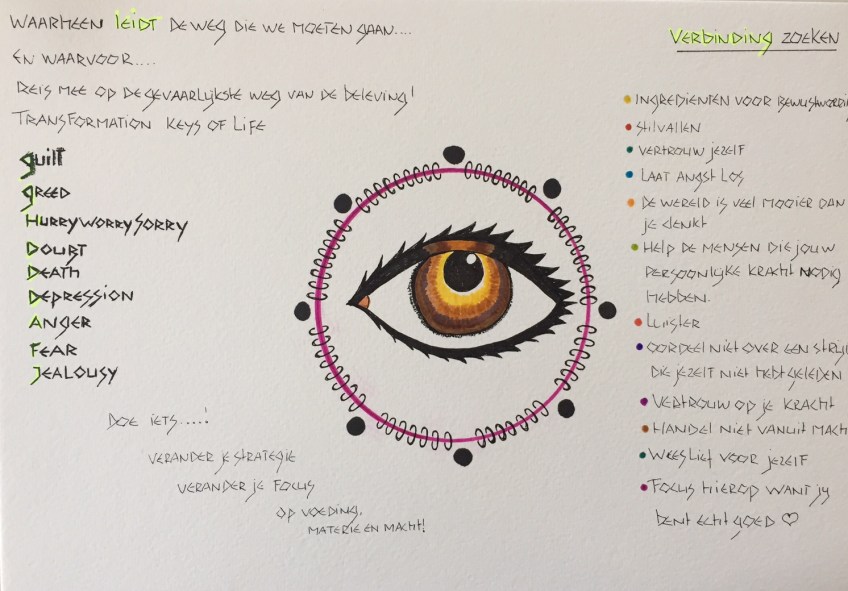 WAARHEEN leidt DE WEG DIE WE MOETEN GAAN....
EN WAARVOOR....
REIS MEE OP DE GEVAARLIJKSTE WEG VAN DE BELEVING!
TRANSFORMATION KEYS OF LIFE
GUILT
GREED
HURRYWORRYSORRY
DOUBT
DEATH
DEPRESSION
ANGER
FEAR
JEALOUSY
DOE IETS....!
VERANDER JE STRATEGIE
VERANDER JE FOCUS
OP VOEDING,
MATERIE EN MACHT!
VERBINDING ZOEKEN
INGREDIENTEN VOOR
STILVALLEN
VERTROUW JEZELF
LAAT ANGST LOS
DE WERELD IS VEEL MOOIER DAN
JE DENKT
HELP DE MENSEN DIE JOUW
PERSOONLIJKE KRACHT NODIG
HEBBEN.
LUISTER
OORDEEL NIET OVER EEN
DIE JEZELF NIET HEBT GELEDEN
VERTROUW OP JE KRACHT
HANDEL NIET VANUIT MACH
WEES LIEF VOOR JEZELF
FOCUS HIEROP WANT JIJ
BENT ECHT GOED ♡